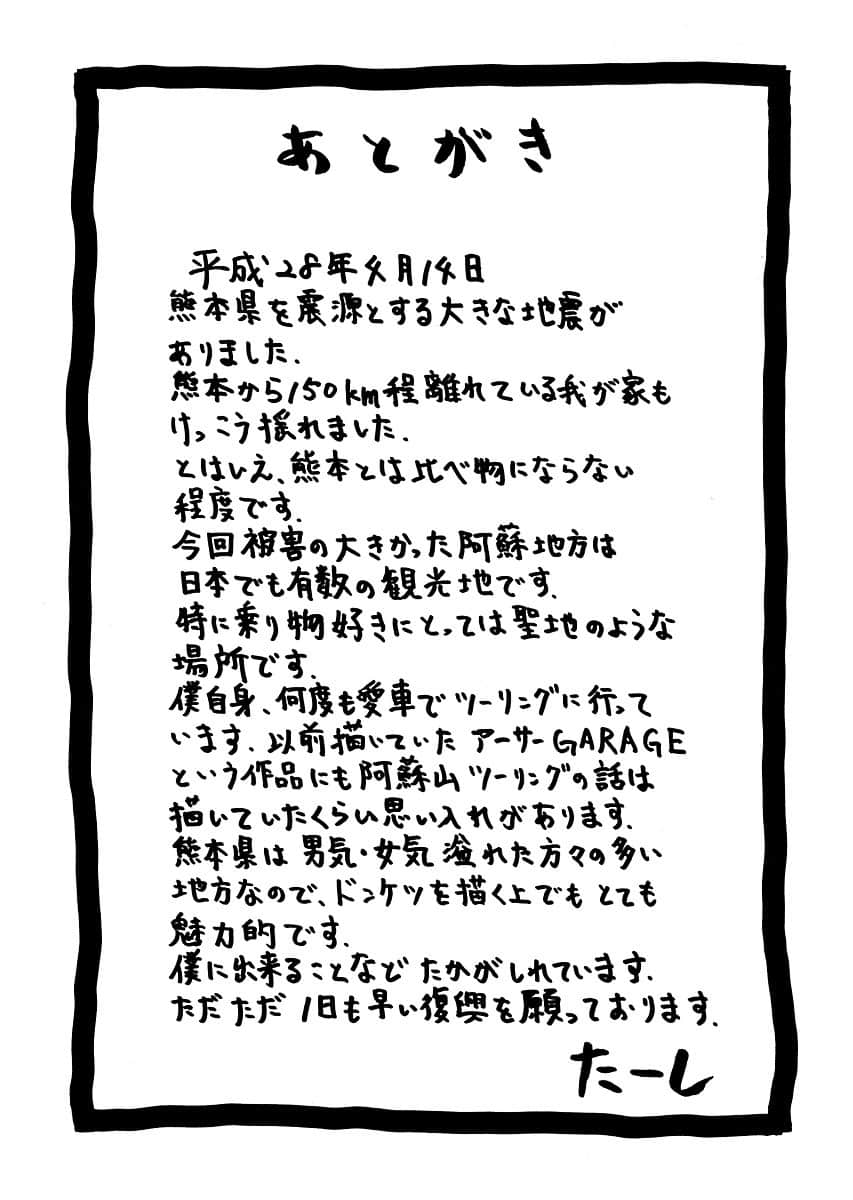 あとがき
平成28年4月14日
熊本県を震源とする大きな地震が
ありました.
熊本から150km程離れている我が家も
けっこう揺れました.
とはいえ、熊本とは比べ物にならない
程度です.
今回被害の大きかった阿蘇地方は
日本でも有数の観光地です.
特に乗り物好きにとっては聖地のような
場所です.
僕自身、何度も愛車でツーリングに行って
います.以前描いていたアーサーGARAGE
という作品にも阿蘇山ツーリングの話は
描いていたくらい思い入れがあります.
熊本県は男気・女気溢れた方々の多い
地方なので、ドンケツを描く上でもとても
魅力的です.
僕に出来ることなどたかがしれています.
ただただ1日も早い復興を願っております.
たーし